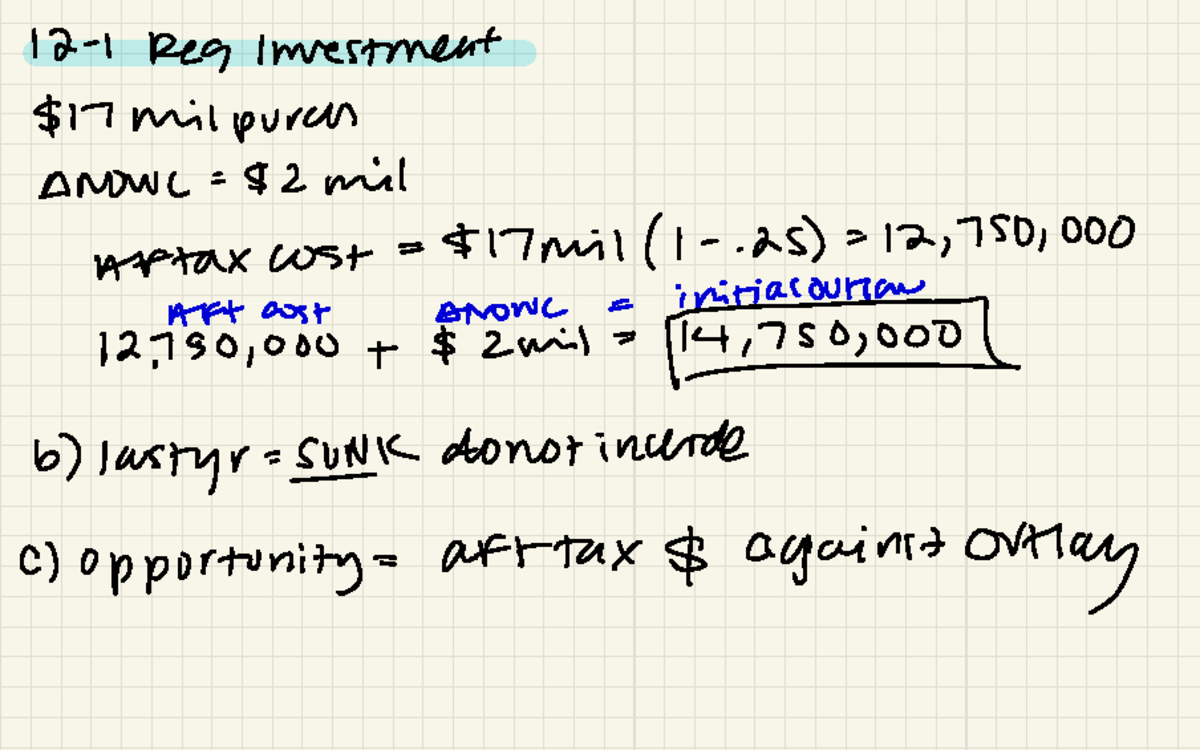 12-1 Req Investment
$17 mil purch
ΔNOWC = $2 mil
Aftax cost = $17mil (1-.25) = 12,750,000
Aft cost ΔNOWC = initial outlay
12,750,000 + $ 2mil = 14,750,000
b) last yr = SUNK do not include
c) opportunity = aft tax $ against outlay